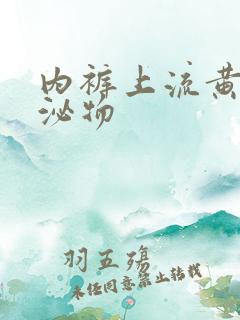 内裤上流黄
泌物
羽五殇
未经同意禁止转载